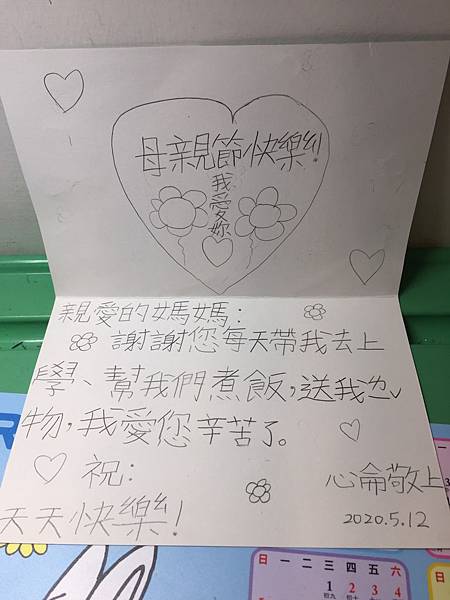 母親節快樂!
我愛妳
親愛的媽媽:
謝謝您每天帶我去上
學、幫我們煮飯,送我ㄌㄧˇ
物,我愛您辛苦了。
祝:
天天快樂!
心侖敬上
2020.5.12
日 一 二 三 四 五 六
1 2 3 4